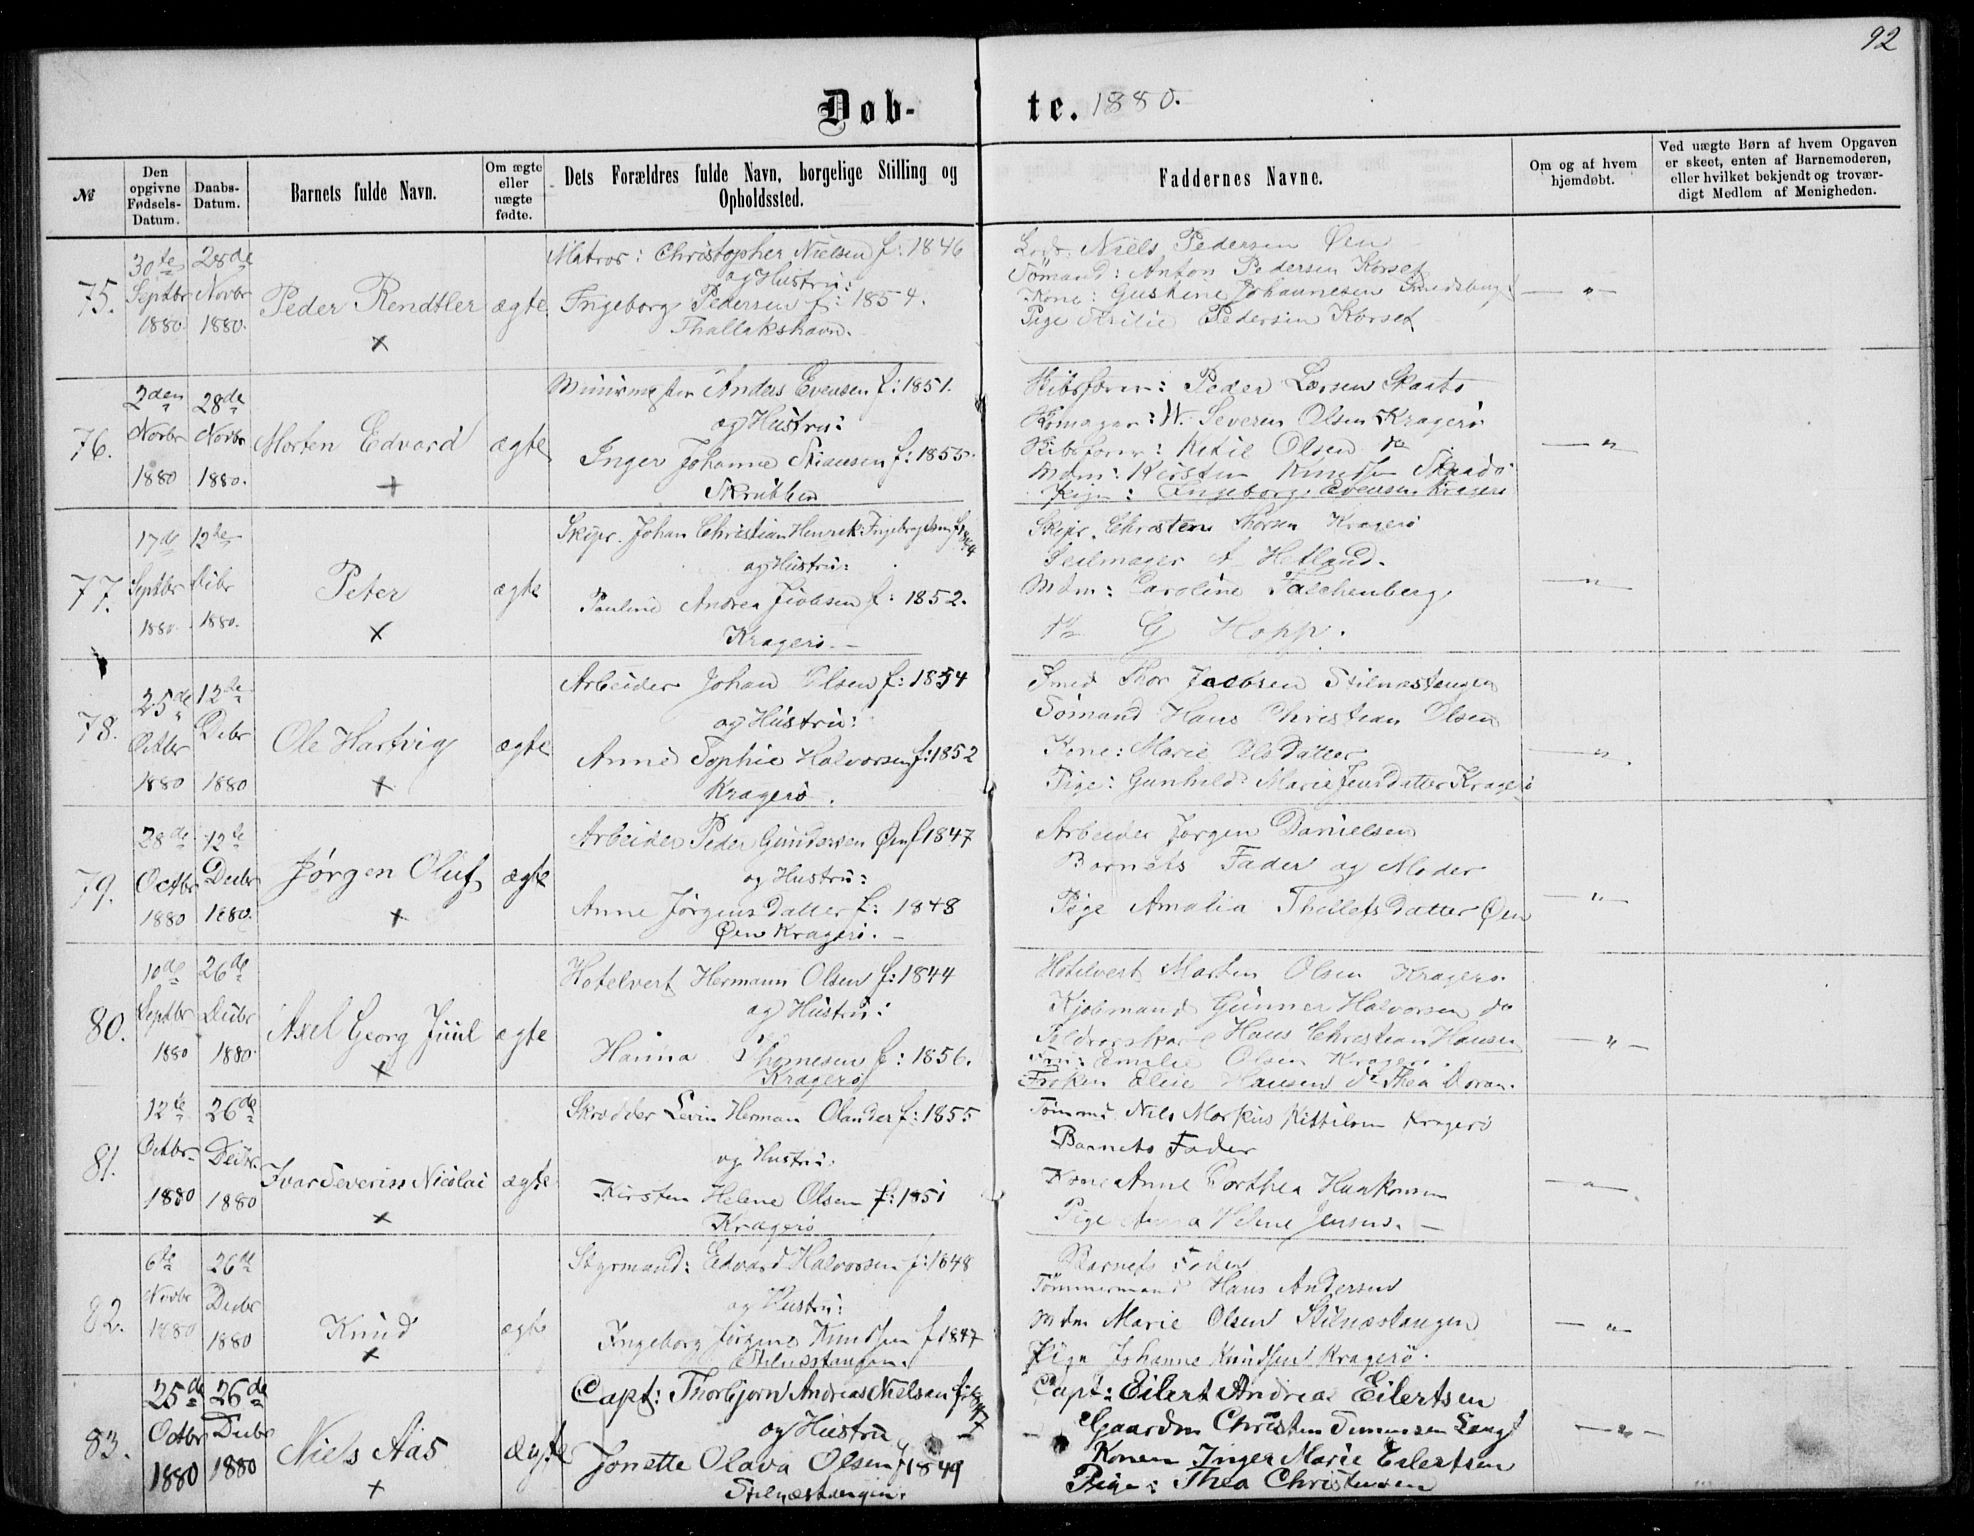 92
Døb-
te. 1880.
№
Den opgivne Fødsels-Datum.
Daabs-Datum.
Barnets fulde Navn.
Om ægte eller uægte fødte.
Dets Forældres fulde Navn, borgelige Stilling og Opholdssted.
Faddernes Navne.
Om og af hvem hjemdøbt.
Ved uægte Børn af hvem Opgaven er skeet, enten af Barnemoderen, eller hvilket bekjendt og troværdigt Medlem af Menigheden.
75.
30te Septbr 1880
28de Novbr 1880.
Peder Rendtler
×
ægte
Matros: Christopher Nielsen f: 1846
og Hustru:
Ingeborg Pedersen f: 1854.
Thallakshavn.
Niels Pedersen Øen
Sömand: Anton Pedersen Korset
Kone: Gustine Johannesen
Pige Pedersen Korset
— " —
76.
2den Novbr 1880
28de Novbr 1880.
Morten Edvard
+
ægte
Anders Evensen f: 1851.
og Hustru:
Inger Johanne f: 1855.
Peder Larsen
W. Severin Olsen Kragerö
Ketil Olsen do
Mdm: Kirsten
Pige: Ingeborg Evensen Kragerö
— "
77.
17de Septbr 1880.
12te Decbr 1880.
Peter
×
ægte
Skipr. Johan Christian Henrik f: 1844
og Hustru:
Pauline Andrea f: 1852.
Kragerö. —
Skipr. Christen Thorsen Kragerö
Seilmager A Hetland.
Mdm: Caroline Faschenberg
do G Hopp.
— " —
78.
25de Octbr 1880
12te Debr 1880
Ole Hartvig
+
ægte
Arbeider Johan Olsen f: 1854
og Hustru:
Anne Sophie Halvorsen f: 1852
Kragerö.
Smed Thor Jacobsen Stilnæstangen
Sömand Hans Christian Olsen
Kone: Marie Olsdatter
Pige: Gunhild Marie Jensdatter Kragerö
— " .
79.
28de Octbr 1880
12te Decbr 1880.
Jørgen Oluf
+
ægte
Arbeider Peder Gundersen Øen f 1847
og Hustru:
Anne Jørgensdatter f: 1848
Øen Kragerö. —
Arbeider Jørgen Danielsen
Barnets Fader og Moder
Pige Amalia Thellefsdatter Øen
— " —
80.
10de Septbr 1880
26de Decbr 1880.
Axel Georg Juul
×
ægte
Hotelvert Hermann Olsen f: 1844
og Hustru:
Hanna Thomesen f: 1856.
Kragerö
Hotelvert Morten Olsen Kragerö
Kjöbmand Gunner Halvorsen do
Hans Christian Hansen
Fru: Emilie Olsen Kragerö.
Froken Elise Hansen do Thea
— " —
81.
12te Octbr. 1880
26de Decbr. 1880
Ivar Severin Nicolai
×
ægte
Skrædder Levin Herman Olander f: 1855
og Hustru:
Kirsten Helene Olsen f: 1851
Kragerö
Nils Markus Kittilsen Kragerö
Barnets Fader
Kone Anne Dorthea Haakonsen
Pige Anna Helene Jensen. —
— " .
82.
6te Novbr 1880
26de Decbr 1880
Knud
×
ægte
Styrmand: Edvard Halvorsen f: 1848
og Hustru:
Ingeborg Jørgine Knudsen f 1847
Stilnæstangen.
Barnets Fader
Tömmermand Hans Andersen
Mdm Marie Olsen Stilnæstangen
Pige Johanne Knudsen Kragerö.
— " —
83.
25de Octbr 1880
26de Decbr 1880
Niels Aas
+
ægte
Capt: Thorbjorn Andreas Nielsen f: 1847
og Hustru
Jonette Olava Olsen f 1849
Stilnæstangen.
Capt: Eilert Andreas Eilertsen
Gaardm Christen
Konen Inger Marie Eilertsen
Pige: Thea Christensen
— " —